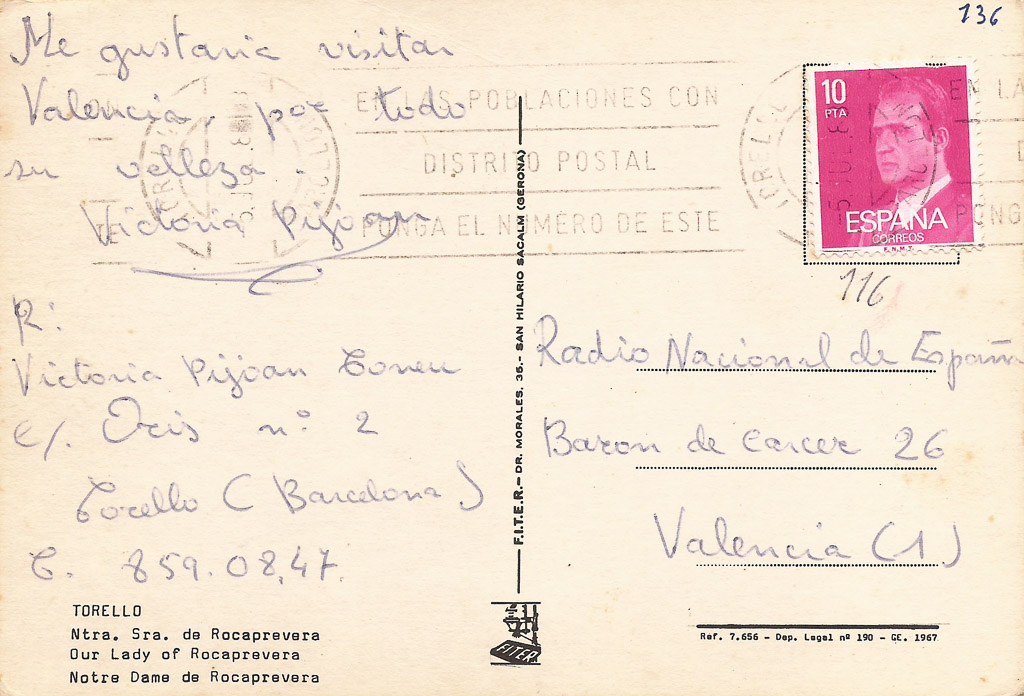 136
Me gustaria visitar
Valencia, por todo
su velleza.
Victoria Pijoan
R:
Victoria Pijoan Toneu
C/. Oris nº 2
Torello (Barcelona)
T. 859.08.47.
TORELLO
Ntra. Sra. de Rocaprevera
Our Lady of Rocaprevera
Notre Dame de Rocaprevera
EN LAS POBLACIONES CON
DISTRITO POSTAL
PONGA EL NUMERO DE ESTE
F.I.T.E.R.-DR. MORALES, 36.- SAN HILARIO SACALM (GERONA)
FITER
10
PTA
ESPAÑA
CORREOS
F.N.M.T.
EN LA
D
PONG
116
Radio Nacional de España
Baron de Carcer 26
Valencia (1)
Ref. 7.656 - Dep. Legal nº 190 - GE. 1967